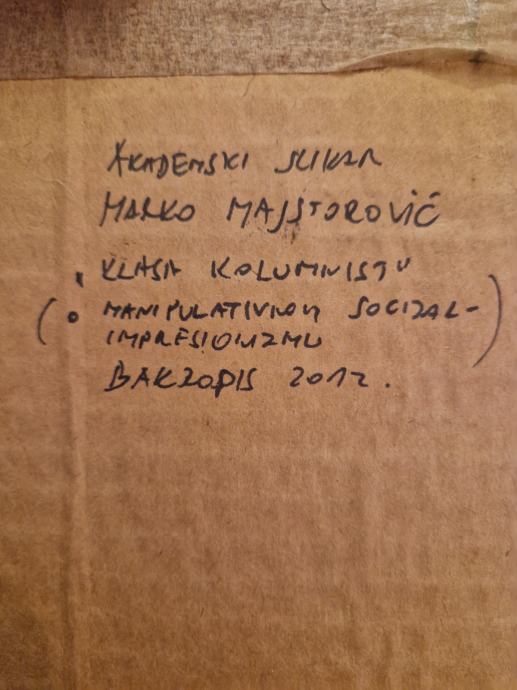 AKADEMSKI SLIKAR
MARKO MAJSTOROVIĆ
"KLASA KOLUMNISTU"
(O MANIPULATIVNOM SOCIJAL-
IMPRESIONIZMU)
BAKROPIS 2012.